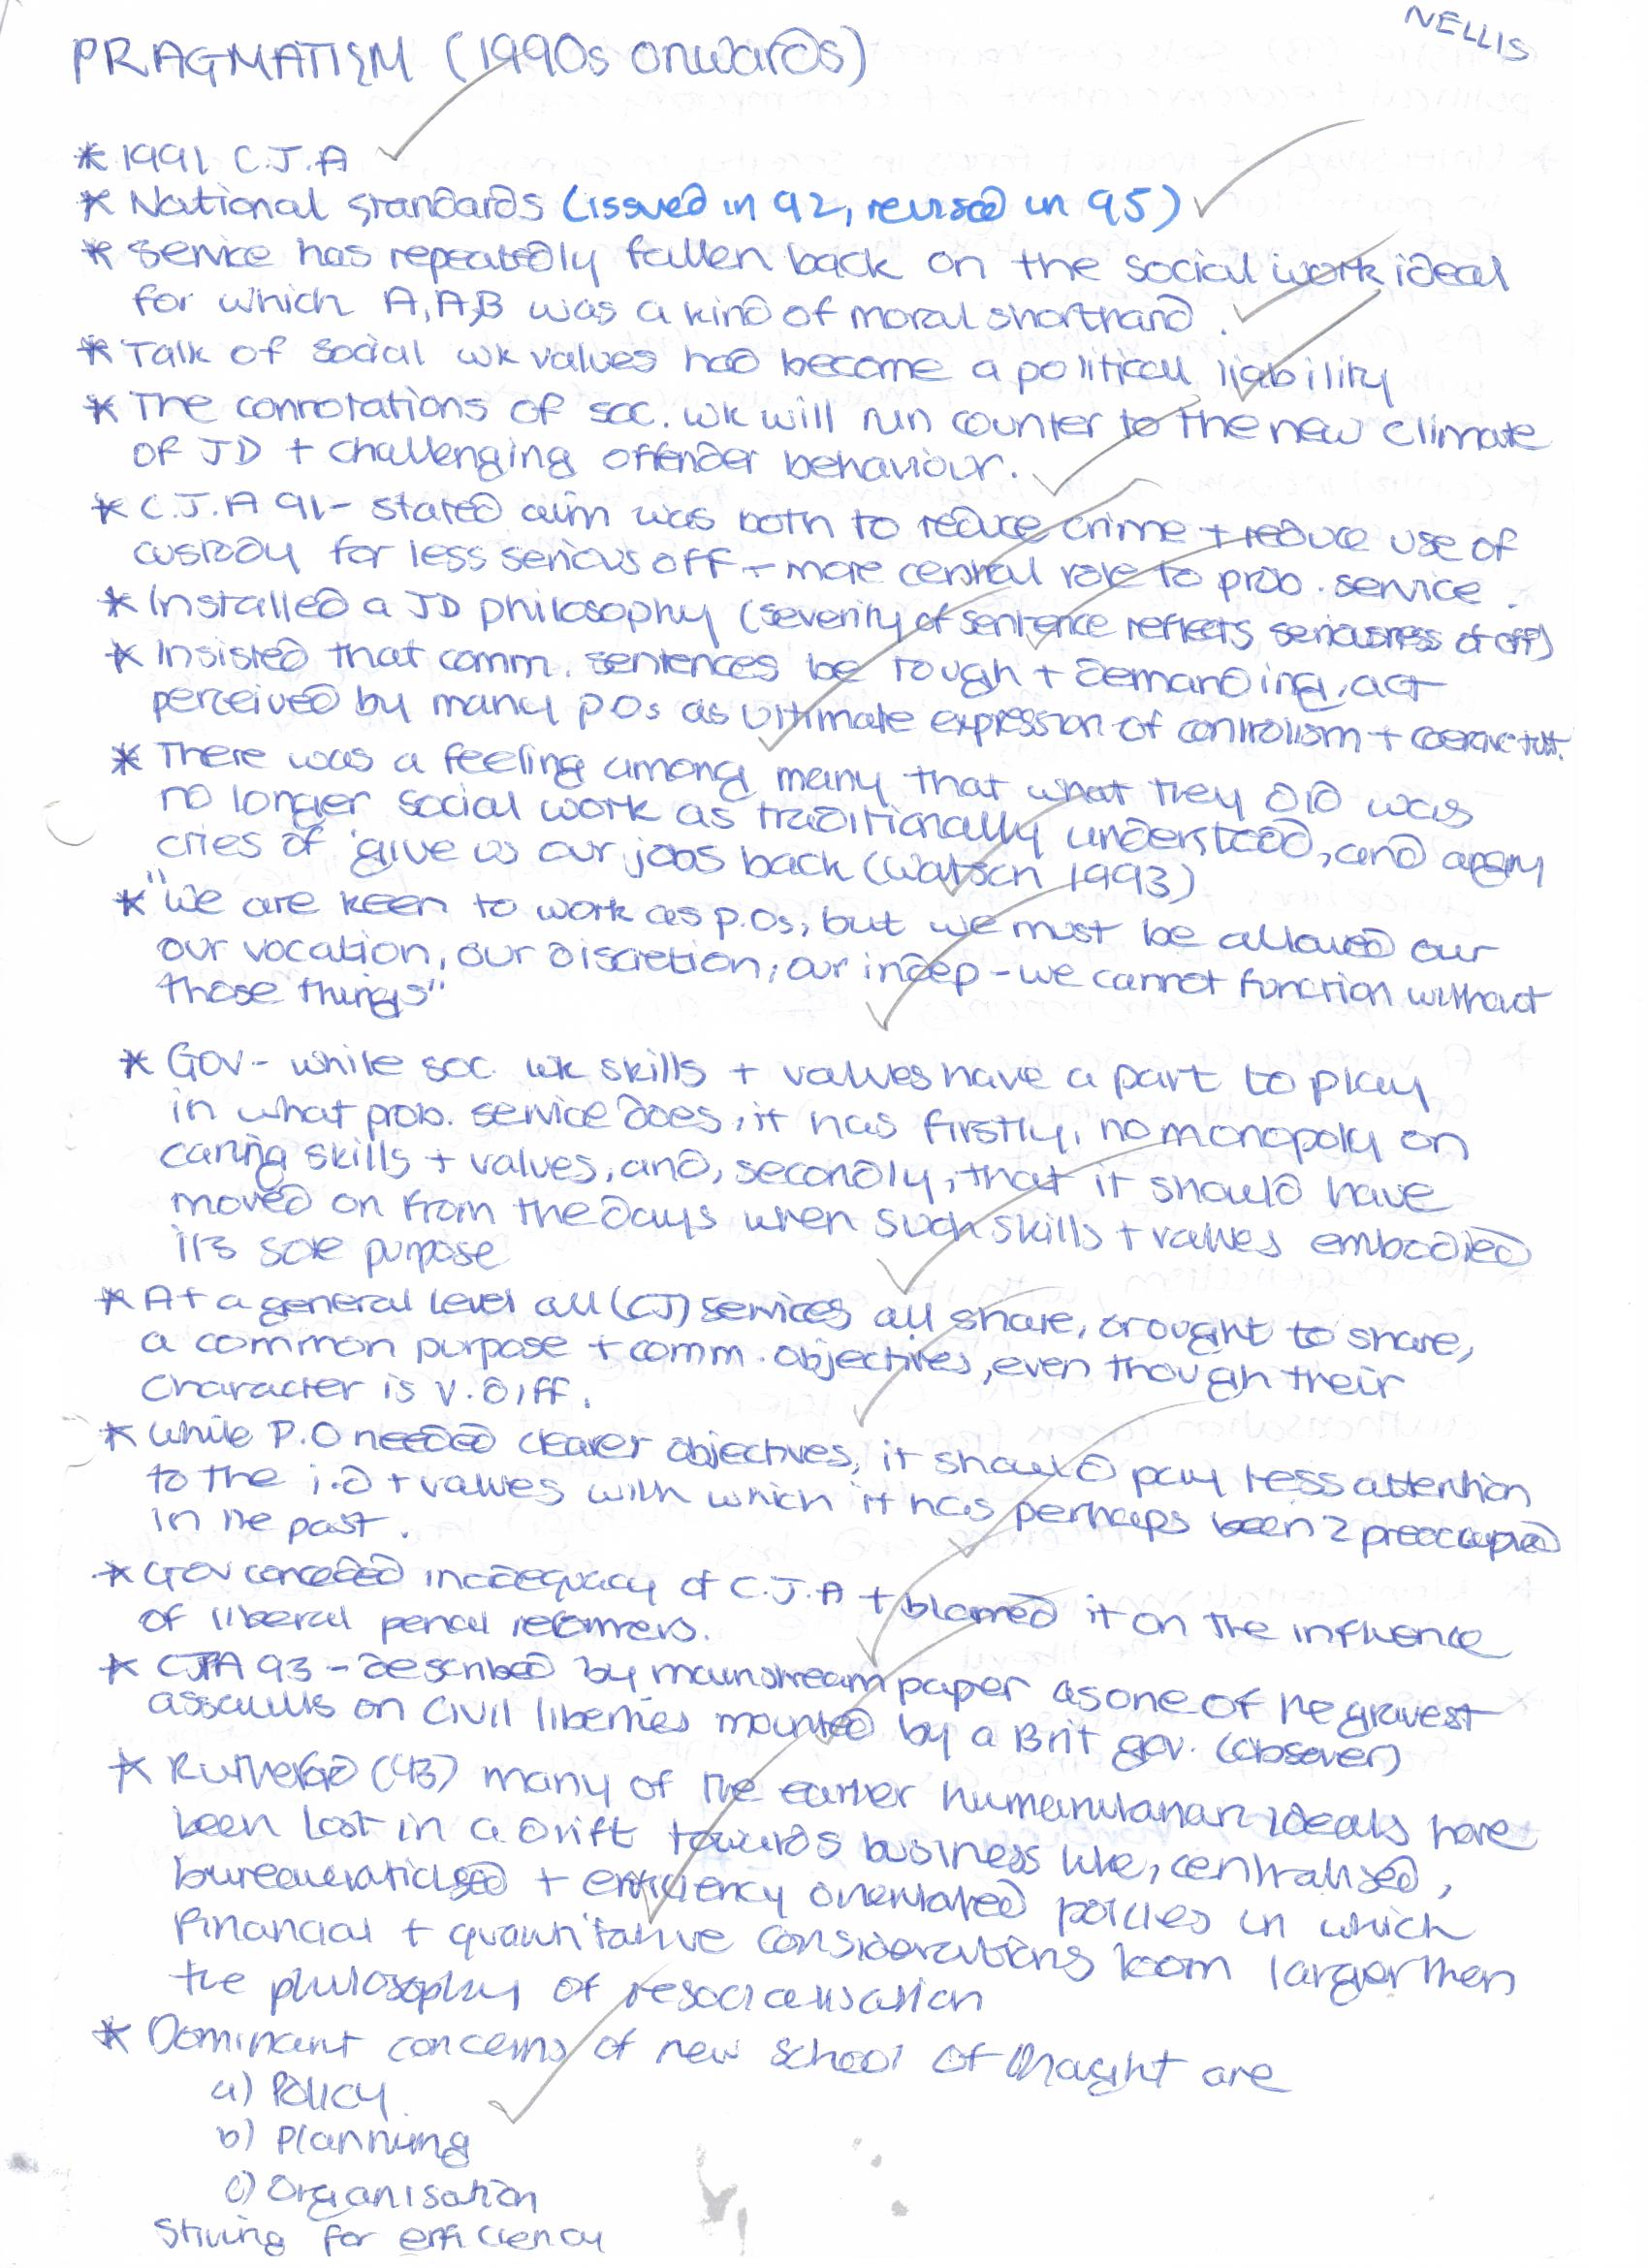 NELLIS
PRAGMATISM (1990s onwards)
* 1991 C.J.A
* National standards (issued in 92, revised in 95)
* Service has repeatedly fallen back on the social work ideal
for which A,A,B was a kind of moral shorthand.
* Talk of social wk values had become a political liability
* The connotations of soc. wk will run counter to the new climate
of JD + challenging offender behaviour.
* C.J.A 91 - stated aim was both to reduce crime + reduce use of
custody for less serious off - more central role to prob. service.
* Installed a JD philosophy (severity of sentence reflects seriousness of off)
* Insisted that comm. sentences be tough + demanding, act
perceived by many POs as ultimate expression of controlism +
* There was a feeling among many that what they did was
no longer social work as traditionally understood, and angry
cries of 'give us our jobs back (Watson 1993)
* "We are keen to work as p.Os, but we must be allowed our
our vocation, our discretion, our indep - we cannot function without
those things"
* Gov - while soc. wk skills + values have a part to play
in what prob. service does, it has firstly, no monopoly on
caring skills + values, and, secondly, that it should have
moved on from the days when such skills + values embodied
its sole purpose
* At a general level all (CJ) services all share, or ought to share,
a common purpose + comm. objectives, even though their
character is v. diff.
* While P.O needed clearer objectives, it should pay less attention
to the i.d + values with which it has perhaps been 2 preoccupied
in the past.
* Gov conceded inadequacy of C.J.A + blamed it on the influence
of liberal penal reformers.
* CJA 93 - described by mainstream paper as one of the gravest
assaults on civil liberties mounted by a Brit gov. (obsever)
* Rutherford (93) many of the earlier humanitarian ideals have
been lost in a drift towards business like, centralised,
bureaucraticised + efficiency orientated policies in which
financial + quantitative considerations loom larger then
the philosophy of resocialisation
* Dominant concerns of new school of thought are
a) Policy
b) Planning
c) Organisation
Striving for efficiency